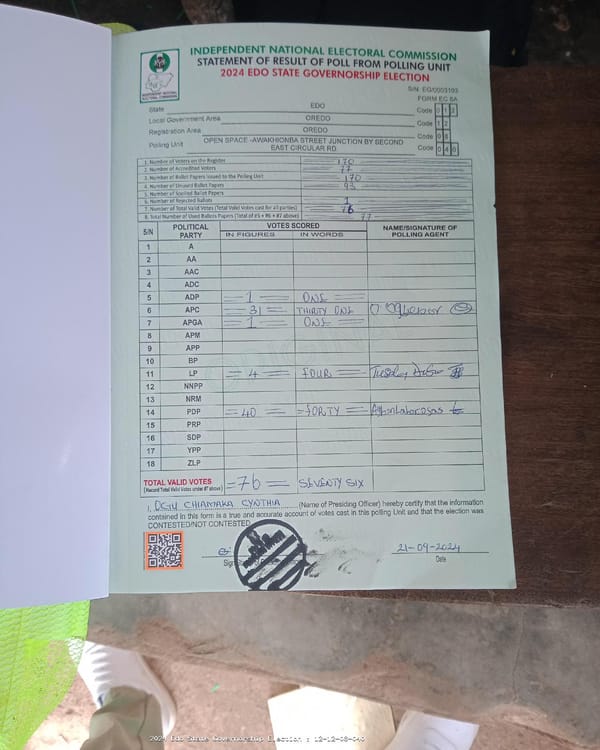 INDEPENDENT NATIONAL ELECTORAL COMMISSION
STATEMENT OF RESULT OF POLL FROM POLLING UNIT
2024 EDO STATE GOVERNORSHIP ELECTION
S/N: EG/0003193
FORM EC 8A
State EDO Code 0 1 2
Local Government Area OREDO Code 1 2
Registration Area OREDO Code 0 8
Polling Unit OPEN SPACE -AWAKHIONBA STREET JUNCTION BY SECOND EAST CIRCULAR RD. Code 0 4 0
1. Number of Voters on the Register 170
2. Number of Accredited Voters 77
3. Number of Ballot Papers Issued to the Polling Unit 170
4. Number of Unused Ballot Papers 93
5. Number of Spoiled Ballot Papers
6. Number of Rejected Ballots 1
7. Number of Total Valid Votes (Total Valid Votes cast for all parties) 76
8. Total Number of Used Ballots Papers (Total of #5 + #6 + #7 above) 77
S/N POLITICAL PARTY VOTES SCORED NAME/SIGNATURE OF POLLING AGENT
IN FIGURES IN WORDS
1 A
2 AA
3 AAC
4 ADC
5 ADP = 1 = ONE =
6 APC = 31 = THIRTY ONE
7 APGA = 1 = ONE =
8 APM
9 APP
10 BP
11 LP = 4 = FOUR = Tuesday
12 NNPP
13 NRM
14 PDP = 40 = = FORTY =
15 PRP
16 SDP
17 YPP
18 ZLP
TOTAL VALID VOTES = 76 = SEVENTY SIX
(Record Total Valid Votes under #7 above)
I, OGU CHIAMAKA CYNTHIA (Name of Presiding Officer) hereby certify that the information
contained in this form is a true and accurate account of votes cast in this polling Unit and that the election was
CONTESTED/NOT CONTESTED.
21-09-2024
Date
2024 Edo State Governorship Election : 12-12-08-040